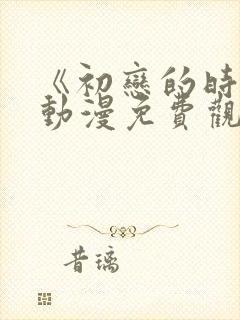 《初戀的時
動漫免費觀
昔璃